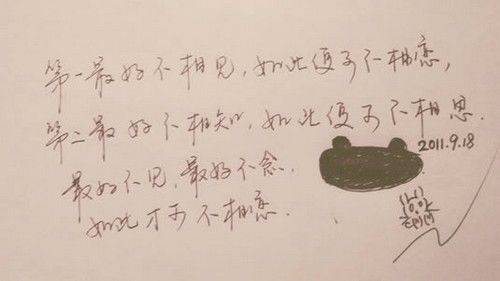 第一最好不相见，如此便可不相恋，
第二最好不相知，如此便可不相思.
最好不见，最好不念.
如此才可不相恋.
2011.9.18